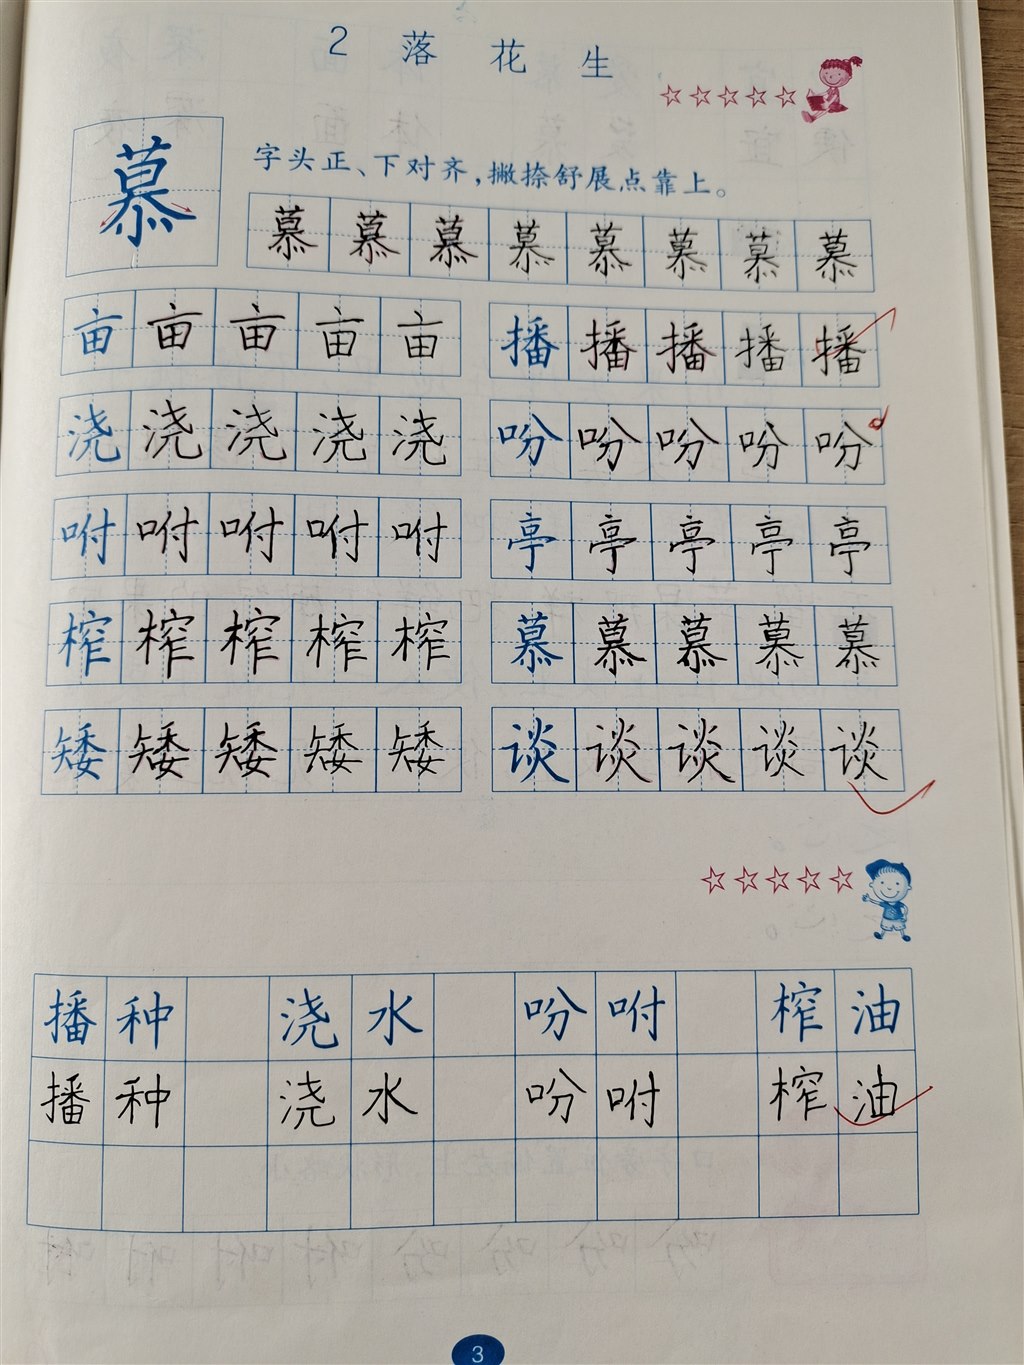 2 落花生
慕
字头正、下对齐，撇捺舒展点靠上。
慕慕慕慕慕慕慕慕
亩亩亩亩亩 播播播播播
浇浇浇浇浇 吩吩吩吩吩
咐咐咐咐咐 亭亭亭亭亭
榨榨榨榨榨 慕慕慕慕慕
矮矮矮矮矮 谈谈谈谈谈
播种 浇水 吩咐 榨油
播种 浇水 吩咐 榨油
3